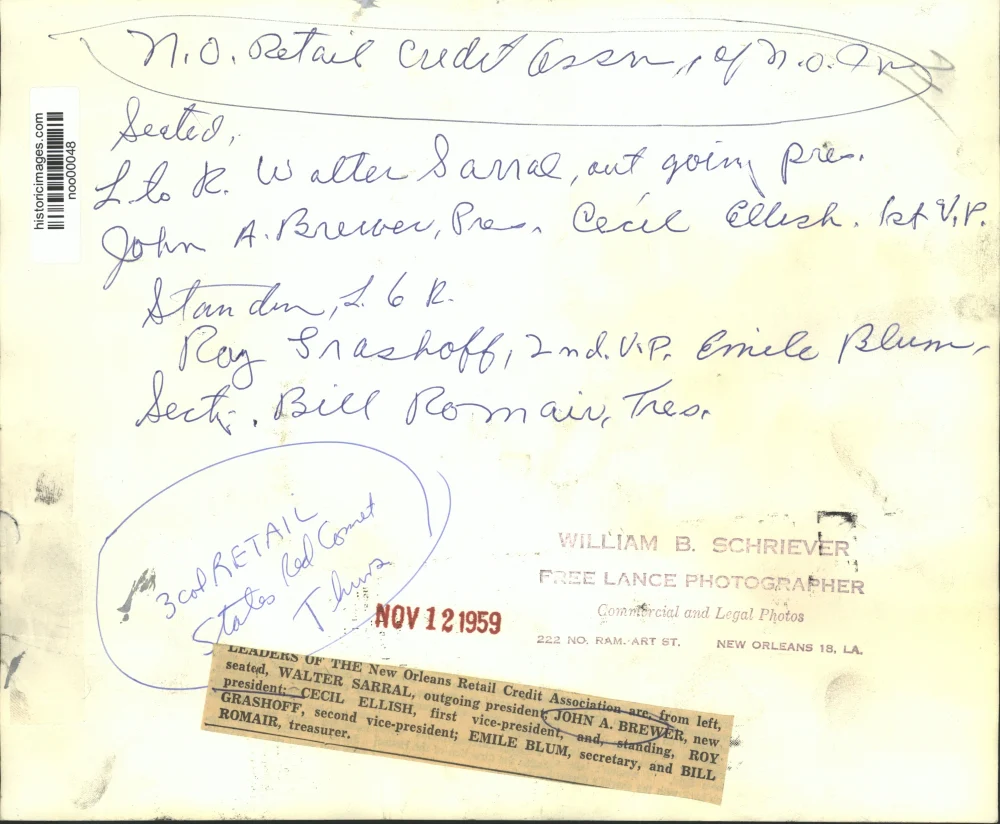 N.O. Retail Credit Assn, of N.O. In
Seated,
L to R. Walter Sarral, out going pres.
John A. Brewer, Pres. Cecil Ellish. 1st V.P.
Standin, L to R.
Roy Grashoff, 2nd. V.P. Emile Blum,
Secty. Bill Romair, Tres.
historicimages.com
noo00048
3 col RETAIL
States Red Comet
Thurs
NOV 12 1959
WILLIAM B. SCHRIEVER
FREE LANCE PHOTOGRAPHER
Commercial and Legal Photos
222 NO. RAM.ART ST. NEW ORLEANS 18, LA.
LEADERS OF THE New Orleans Retail Credit Association are, from left,
seated, WALTER SARRAL, outgoing president; JOHN A. BREWER, new
president; CECIL ELLISH, first vice-president, and, standing, ROY
GRASHOFF, second vice-president; EMILE BLUM, secretary, and BILL
ROMAIR, treasurer.